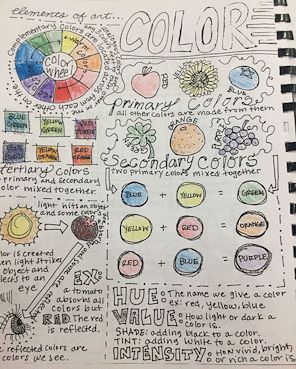 elements of art...
COLOR
Complementary Colors
color
wheel
RED
YELLOW
BLUE
primary colors
all other colors are made from them
GREEN
ORANGE
PURPLE
Secondary colors
two primary colors mixed together
BLUE
GREEN
YELLOW
GREEN
YELLOW
ORANGE
RED
ORANGE
tertiary colors
primary and secondary
color mixed together.
BLUE + YELLOW = GREEN
YELLOW + RED = ORANGE
RED + BLUE = PURPLE
light hits an object
and some color is
color is created
when light strikes
object and
reflects to an
eye
EX:
a tomato
absorbs all
colors but
RED. The red
is reflected.
reflected colors are
colors we see.
HUE: The name we give a color
ex: red, yellow, blue
VALUE: How light or dark a
color is.
SHADE: adding black to a color.
TINT: adding white to a color.
INTENSITY: How vivid, bright,
or rich a color is.